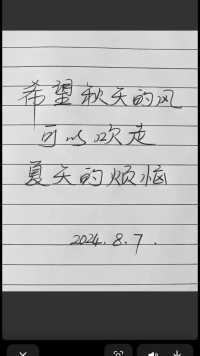 希望秋天的风
可以吹走
夏天的烦恼
2024.8.7.